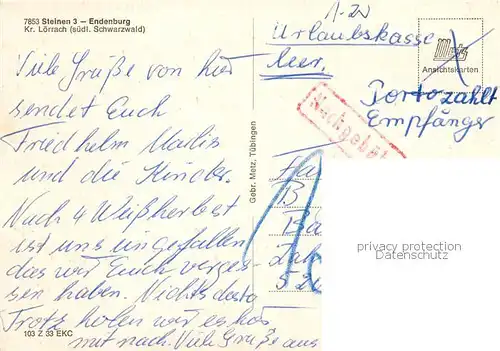 7853 Steinen 3 — Endenburg
Kr. Lörrach (südl. Schwarzwald)
Viele Grüße von hier
sendet Euch
Friedhelm Marlis
und die Kinder.
Nach 4 Weißherbst
ist uns eingefallen
das wir Euch verges-
sen haben. Nichts dasto
Trotz holen wir es
mit nach. Viele Grüße aus
103 Z 33 EKC
Gebr. Metz, Tübingen
Urlaubskasse
leer.
Metz
Ansichtskarten
Porto zahlt
Empfänger
Nachgebühr
privacy protection
Datenschutz